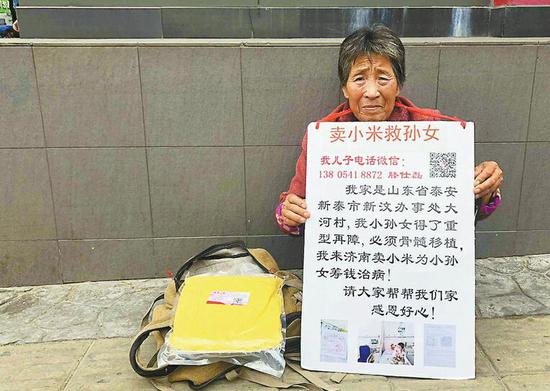 卖小米救孙女
我儿子电话微信：
138 0541 8872 滕仕磊
我家是山东省泰安
新泰市新汶办事处大
河村，我小孙女得了重
型再障，必须骨髓移植，
我来济南卖小米为小孙
女筹钱治病！
请大家帮帮我们家
感恩好心！